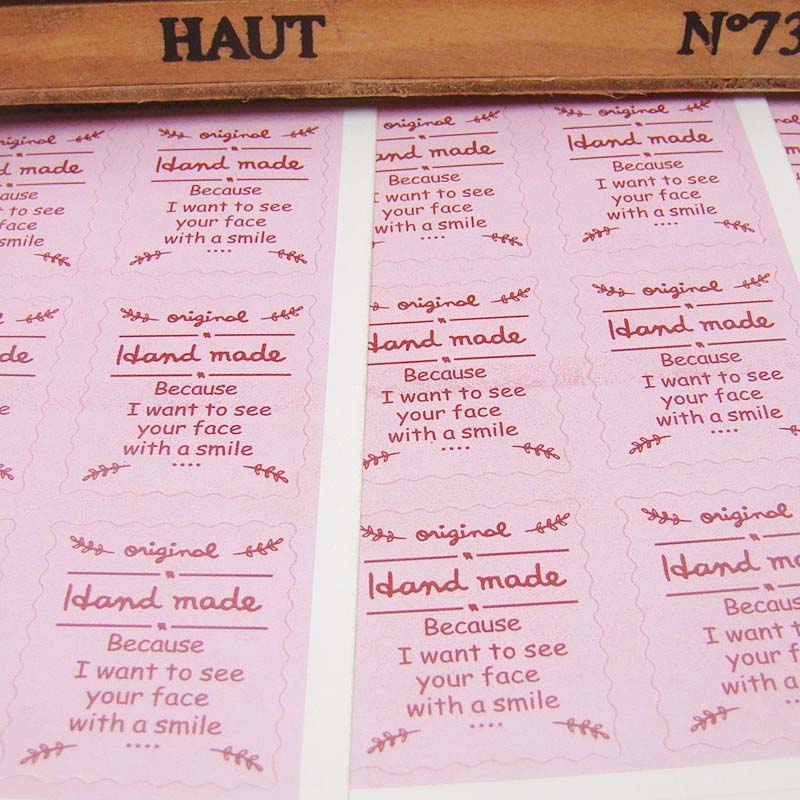 HAUT
N°73
original
Hand made
Because
I want to see
your face
with a smile
....
original
Hand made
Because
I want to see
your face
with a smile
....
original
Hand made
Because
I want to see
your face
with a smile
....
original
Hand made
Because
I want to see
your face
with a smile
....
original
Hand made
Because
I want to see
your face
with a smile
....
original
Hand made
Because
I want to see
your face
with a smile
....
original
Hand made
Because
I want to see
your face
with a smile
....
original
Hand made
Because
I want to see
your face
with a smile
....
original
Hand
Because
I want
your
with a